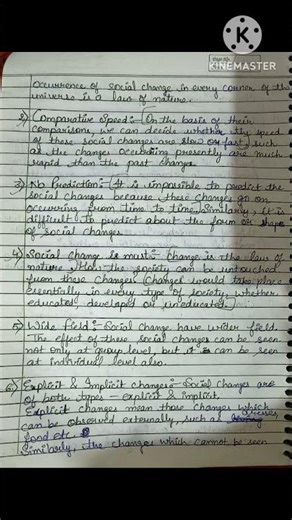 K
Made With
KINEMASTER
occurrence of social change in every corner of the
universe is a law of nature.
2) Comparative Speed:- (On the basis of their
comparisons, we can decide whether the speed
of these social changes are slow or fast, such
as the changes occurring presently are much
rapid than the past changes.
3) No Prediction:- (It is impossible to predict the
social changes because these changes go on
occuring from time to time. Similarly, it is
difficult to predict about the form or shape
of social changes.
4) Social Change is must:- Change is the law of
nature. Non the society can be untouched
from these changes. (Changes would take place
essentially in every type of society, whether
educated, developed or uneducated.)
5) Wide Field:- Social Change have wider field.
The effect of these social changes can be seen
not only at group level, but it can be seen
at individual level also.
6) Explicit & Implicit changes:- Social Changes are
of both types - explicit & implicit.
Explicit changes mean those changes which
can be observed externally, such as dresses,
food etc.
Similarly, the changes which cannot be seen